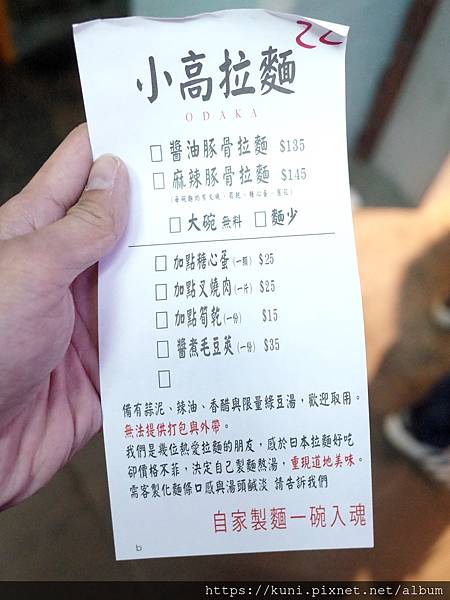 22
小高拉麵
ODAKA
□ 醬油豚骨拉麵 $135
□ 麻辣豚骨拉麵 $145
□ 大碗 無料 □ 麵少
□ 加點糖心蛋(一顆) $25
□ 加點叉燒肉(一片) $25
□ 加點筍乾(一份) $15
□ 醬煮毛豆莢(一份) $35
□
備有蒜泥、辣油、香醋與限量綠豆湯,歡迎取用。
無法提供打包與外帶。
我們是幾位熱愛拉麵的朋友,感於日本拉麵好吃
卻價格不菲,決定自己製麵熬湯,重現道地美味。
需客製化麵條口感與湯頭鹹淡 請告訴我們
自家製麵一碗入魂
b
https://kuni.pixnet.net/album